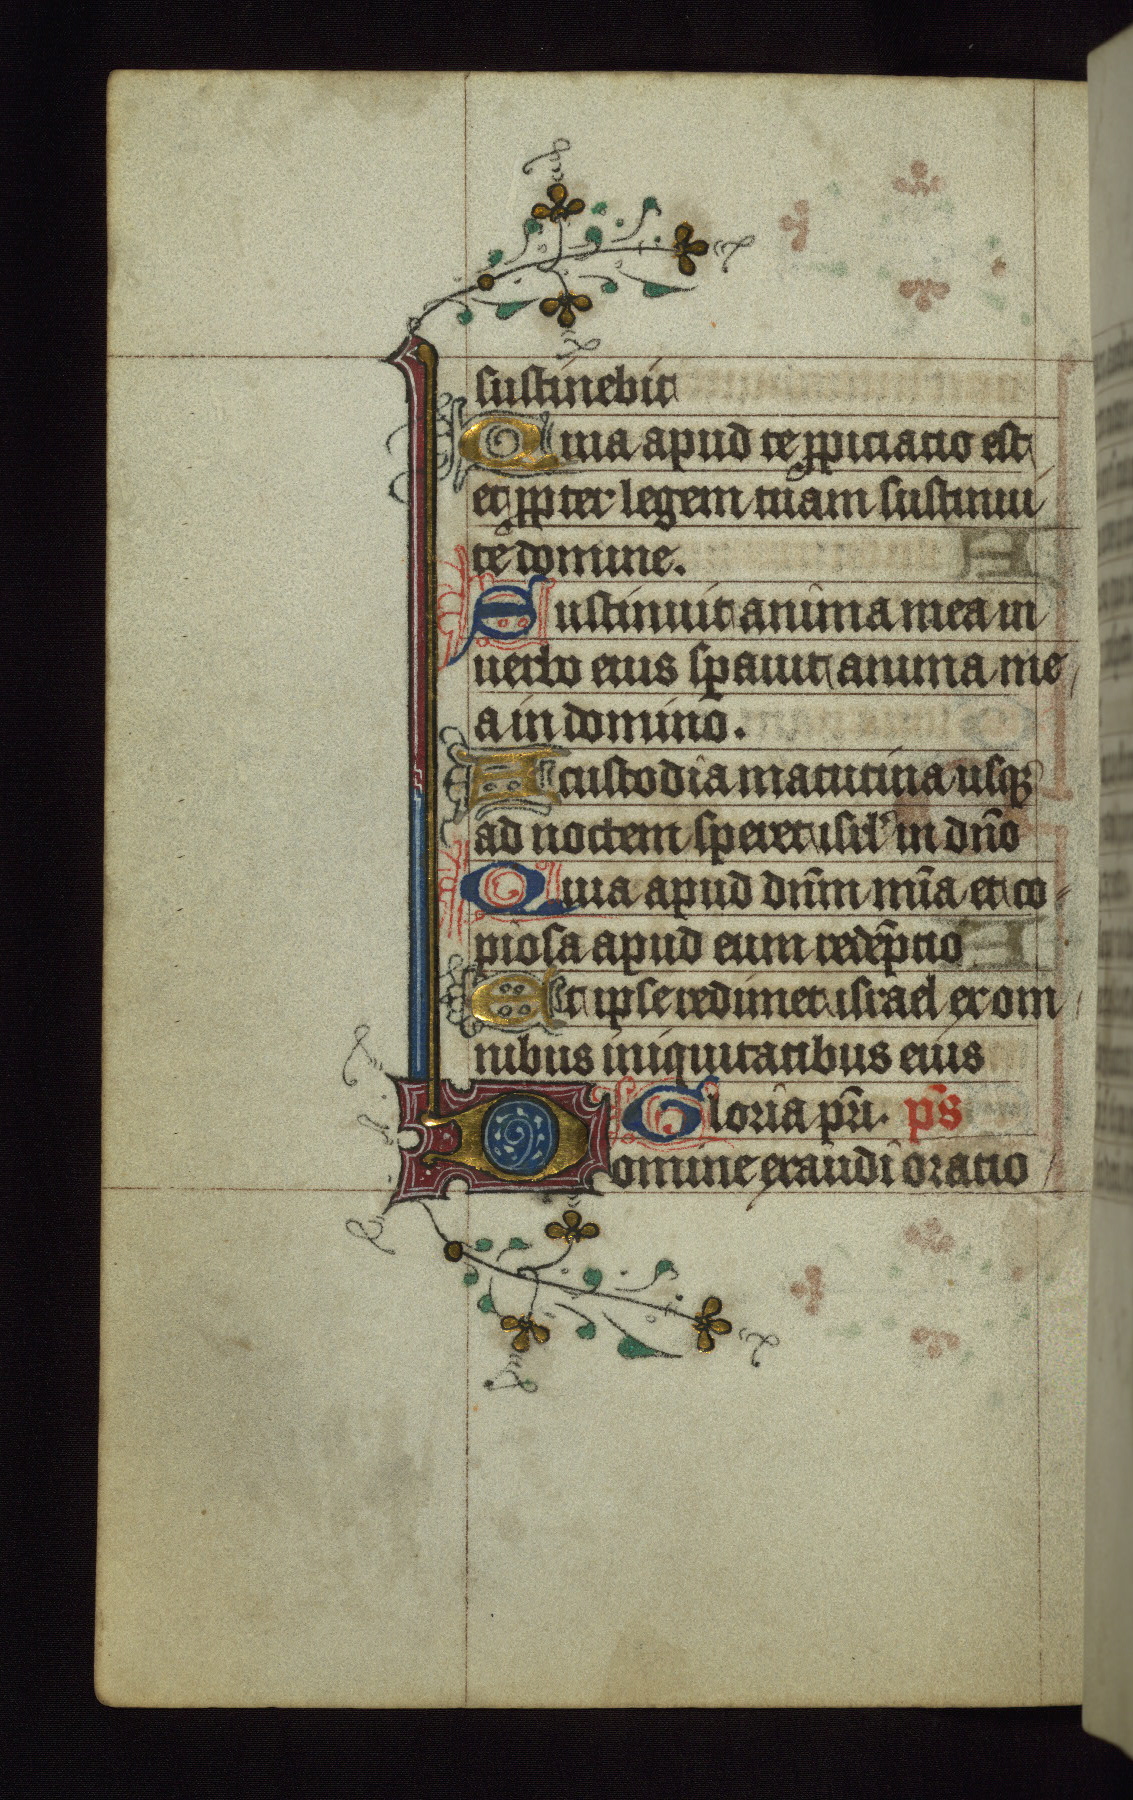 sustinebit
Quia apud te ꝓpiciatio est
et ꝓpter legem tuam sustinui
te domine.
Sustinuit anima mea in
uerbo eius sꝑauit anima me
a in domino.
A custodia matutina usqꝫ
ad noctem speret isrl' in dn̄o
Quia apud dn̄m mīa et co-
piosa apud eum redēptio
Et ipse redimet israel ex om
nibus iniquitatibus eius
Gloria pr̄i. ps̄
Domine exaudi oratio